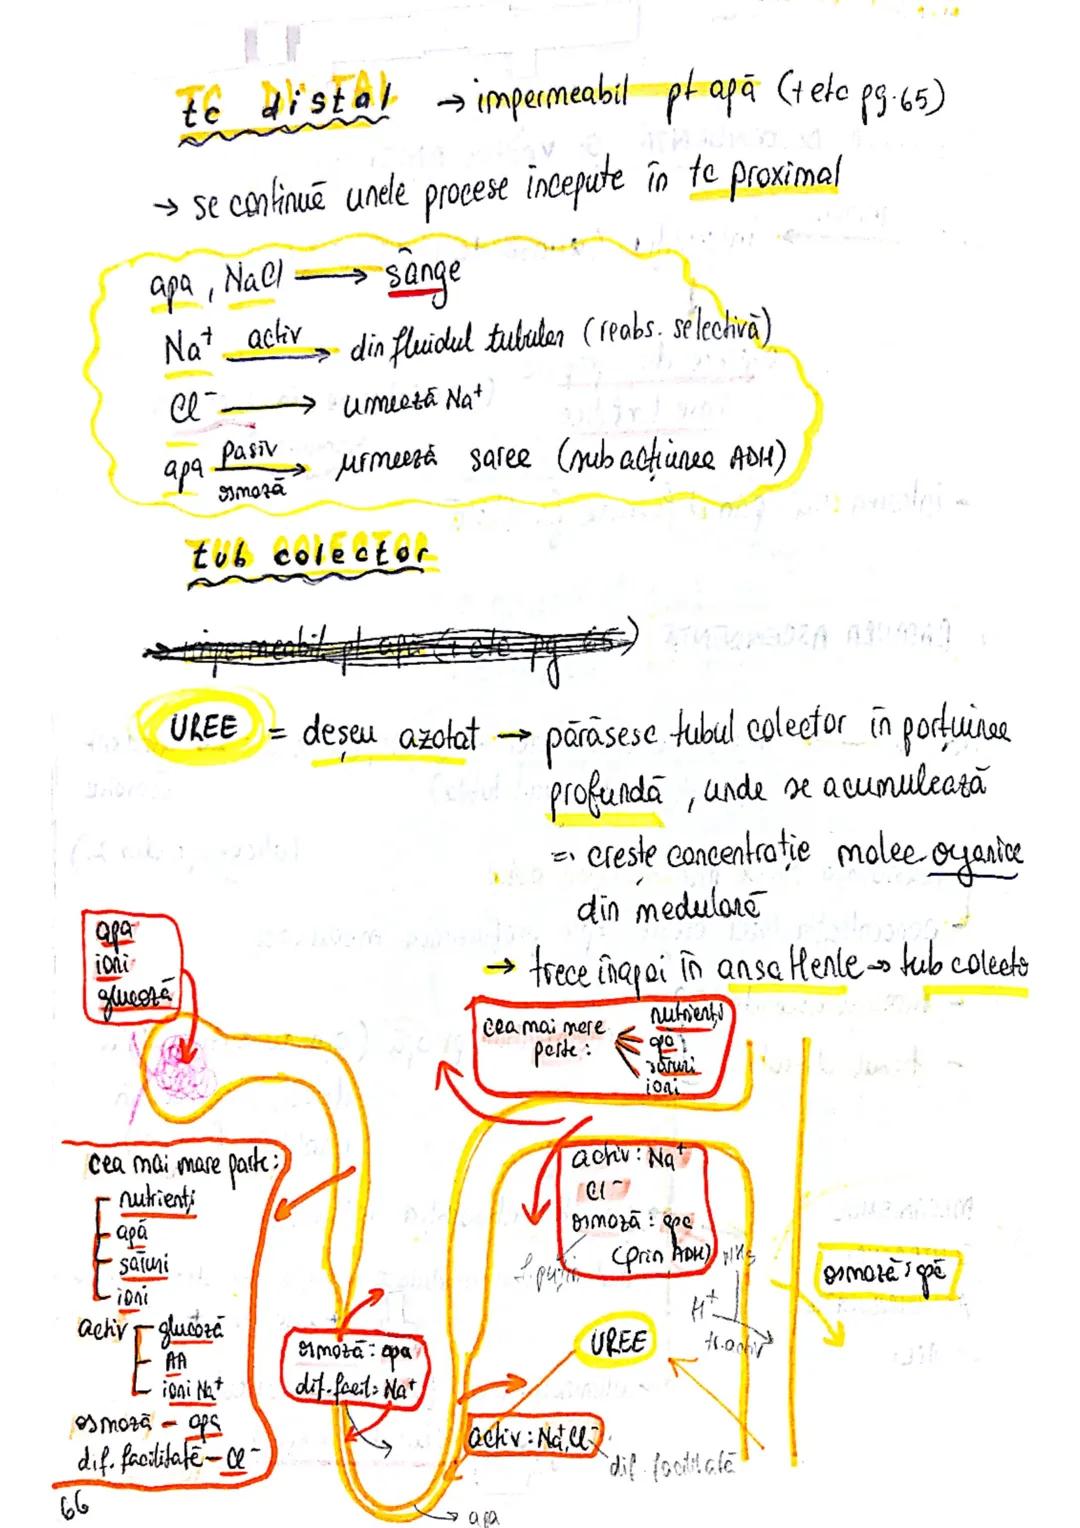 tc distal → impermeabil pt apă (+ etc pg. 65)
→ se continuă unele procese începute în tc proximal
apa, NaCl → sânge
Na⁺ activ → din fluidul tubular (reabs. selectivă)
Cl⁻ → urmează Na⁺
apa pasiv → urmează sarea (sub acțiunea ADH)
osmoză
tub colector
→ impermeabil pt apă (+ etc pg 65)
UREE = deșeu azotat → părăsesc tubul colector în porțiunea
profundă, unde se acumulează
=> crește concentrație molec organice
din medulară
→ trece înapoi în ansa Henle → tub colecto
apa
ioni
glucoză
cea mai mare parte:
nutrienți
apă
săruri
ioni
cea mai mare parte:
nutrienți
apă
săruri
ioni
activ
glucoză
AA
ioni Na⁺
osmoză - apă
dif. facilitată - Cl⁻
osmoză: apa
dif. facil: Na⁺
activ: Na⁺
Cl⁻
osmoză: apa
(prin ADH)
NH₃
H⁺
tr. activ
osmoză: apă
UREE
activ: Na⁺, Cl⁻
dif. facilitată
apa
66